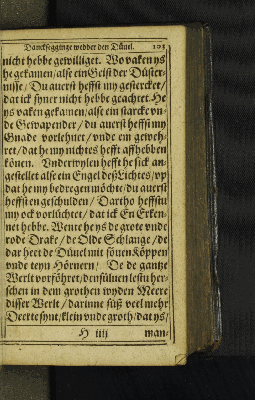 Dancksegginge wedder den Düuel. 103
nicht hebbe gewilliget. Wo vaken ys
he gekamen / alse ein Geist der Düster-
nisse / Du auerst heffst my gestercket /
dat ick syner nicht hebbe geachtet. He
ys vaken gekamen / alse ein starcke vn-
de Gewapender / du auerst heffst my
Gnade vorlehnet / vnde em geweh-
ret / dat he my nichtes hefft affhebben
könen. Vnderwylen hefft he sick an-
gestellet alse ein Engel deß Lichtes / vp
dat he my bedregen möchte / du auerst
heffst en geschulden / Dartho heffstu
my ock vorlüchtet / dat ick En Erken-
net hebbe. Wente he ys de grote vnde
rode Drake / de Olde Schlange / de
dar heet de Düuel mit söuen Köppen
vnde teyn Hörnern / De de gantze
Werlt vorföhret / densüluen lestu her-
schen in dem grothen wyden Meere
disser Werlt / darinne süß veel mehr
Deerte synt / klein vnde groth / dat ys /
H iiij man-